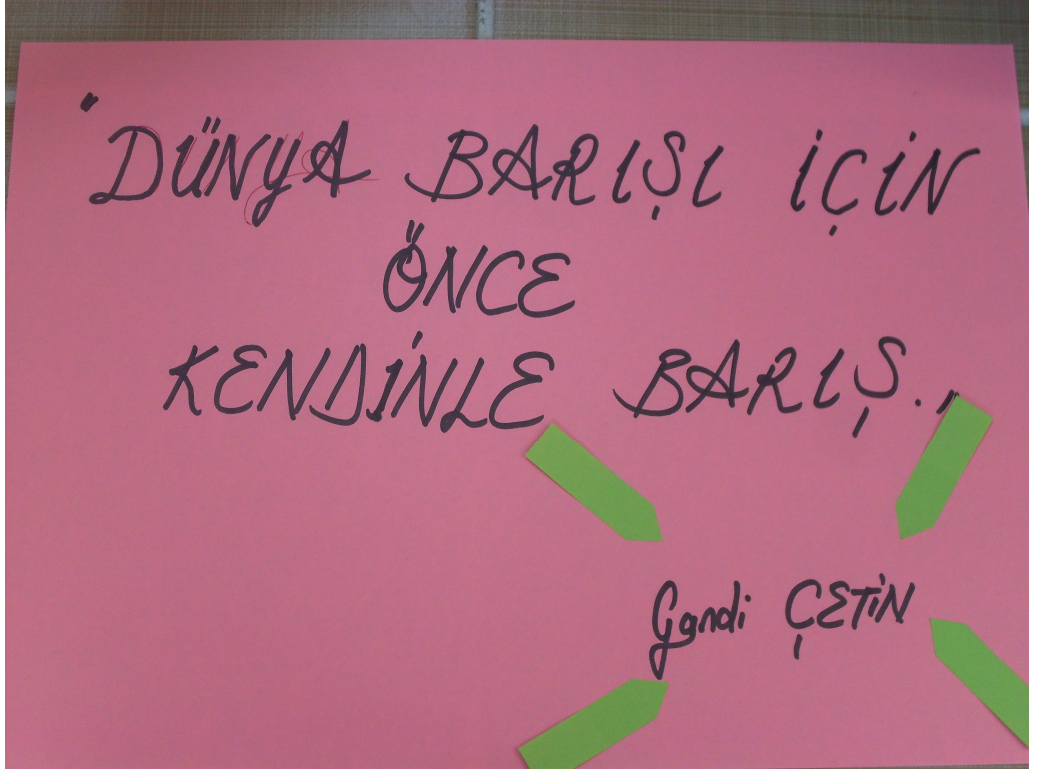 "DÜNYA BARIŞI İÇİN
ÖNCE
KENDİNLE BARIŞ.„
Gandi ÇETİN